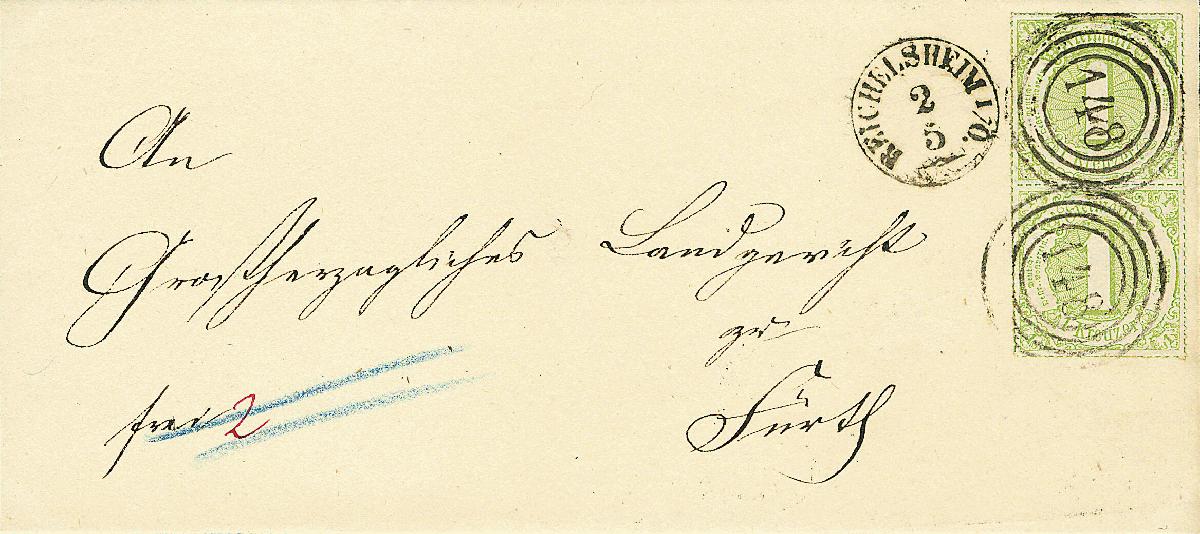 REICHELSHEIM I/O.
2
5
148
1
148
An
Großherzogliches Landgericht
zu
Fürth
frei 2